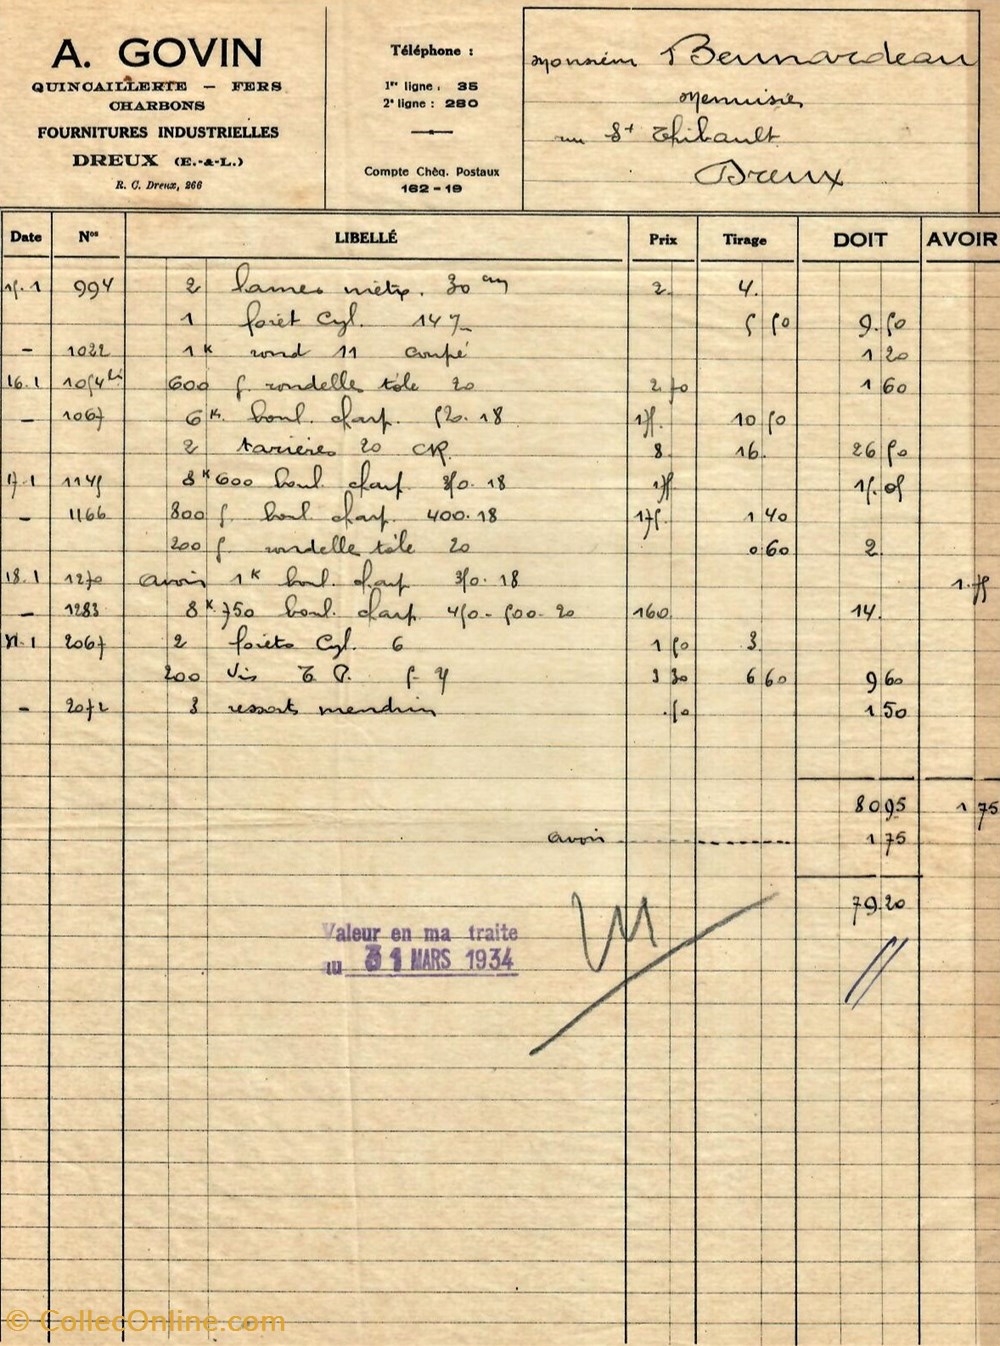 A. GOVIN
QUINCAILLERIE — FERS
CHARBONS
FOURNITURES INDUSTRIELLES
DREUX (E.-&-L.)
R. C. Dreux, 266
Téléphone :
1re ligne : 35
2e ligne : 280
Compte Chèq. Postaux
162-19
Monsieur Bernardeau
Menuisier
rue St Thibault
Dreux
Date Nos LIBELLÉ Prix Tirage DOIT AVOIR
15.1 994 2 lames métx. 30 cm 2. 4.
1 foret Cyl. 14 5 50 9.50
- 1022 1K rond 11 coupé 1 20
16.1 1054 600 g. rondelle tôle 20 2 70 1 60
- 1067 6K. boul. charp. 520.18 175. 10 50
2 tarières 20 CR. 8. 16. 26 50
17.1 1145 8K600 boul. charp. 350.18 175 15.05
- 1166 800 g. boul. charp. 400.18 175. 1 40
200 g. rondelle tôle 20 0 60 2.
18.1 1270 avoir 1K boul. charp 350.18 1.75
- 1283 8K.750 boul. charp 450-500-20 160. 14.
1 2067 2 forets Cyl. 6 1 50 3.
200 Vis T. P. 3 30 6 60 9 60
- 2072 3 ressorts mandrin .50 1 50
80 95 1 75
avoir 1 75
79.20
Valeur en ma traite
au 31 MARS 1934
© CollecOnline.com